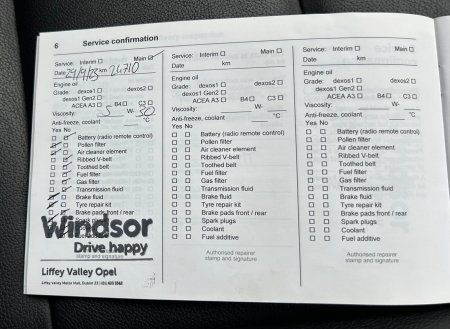 6 Service confirmation
Service: Interim Main
Date 29/9/23 km 24710
Engine oil
Grade: dexos1 dexos2
dexos1 Gen2
ACEA A3 B4 C3
Viscosity: 5 W- 30
Anti-freeze, coolant °C
Yes No
Battery (radio remote control)
Pollen filter
Air cleaner element
Ribbed V-belt
Toothed belt
Fuel filter
Gas filter
Transmission fluid
Brake fluid
Tyre repair kit
Brake pads front / rear
Windsor
Drive happy
stamp and signature
Liffey Valley Opel
Liffey Valley Motor Mall, Dublin 22
Service: Interim Main
Date km
Engine oil
Grade: dexos1 dexos2
dexos1 Gen2
ACEA A3 B4 C3
Viscosity: W-
Anti-freeze, coolant °C
Yes No
Battery (radio remote control)
Pollen filter
Air cleaner element
Ribbed V-belt
Toothed belt
Fuel filter
Gas filter
Transmission fluid
Brake fluid
Tyre repair kit
Brake pads front / rear
Spark plugs
Coolant
Fuel additive
Authorised repairer
stamp and signature
Service: Interim Main
Date km
Engine oil
Grade: dexos1 dexos2
dexos1 Gen2
ACEA A3 B4 C3
Viscosity: W-
Anti-freeze, coolant °C
Yes No
Battery (radio remote control)
Pollen filter
Air cleaner element
Ribbed V-belt
Toothed belt
Fuel filter
Gas filter
Transmission fluid
Brake fluid
Tyre repair kit
Brake pads front / rear
Spark plugs
Coolant
Fuel additive
Authorised repairer
stamp and signature